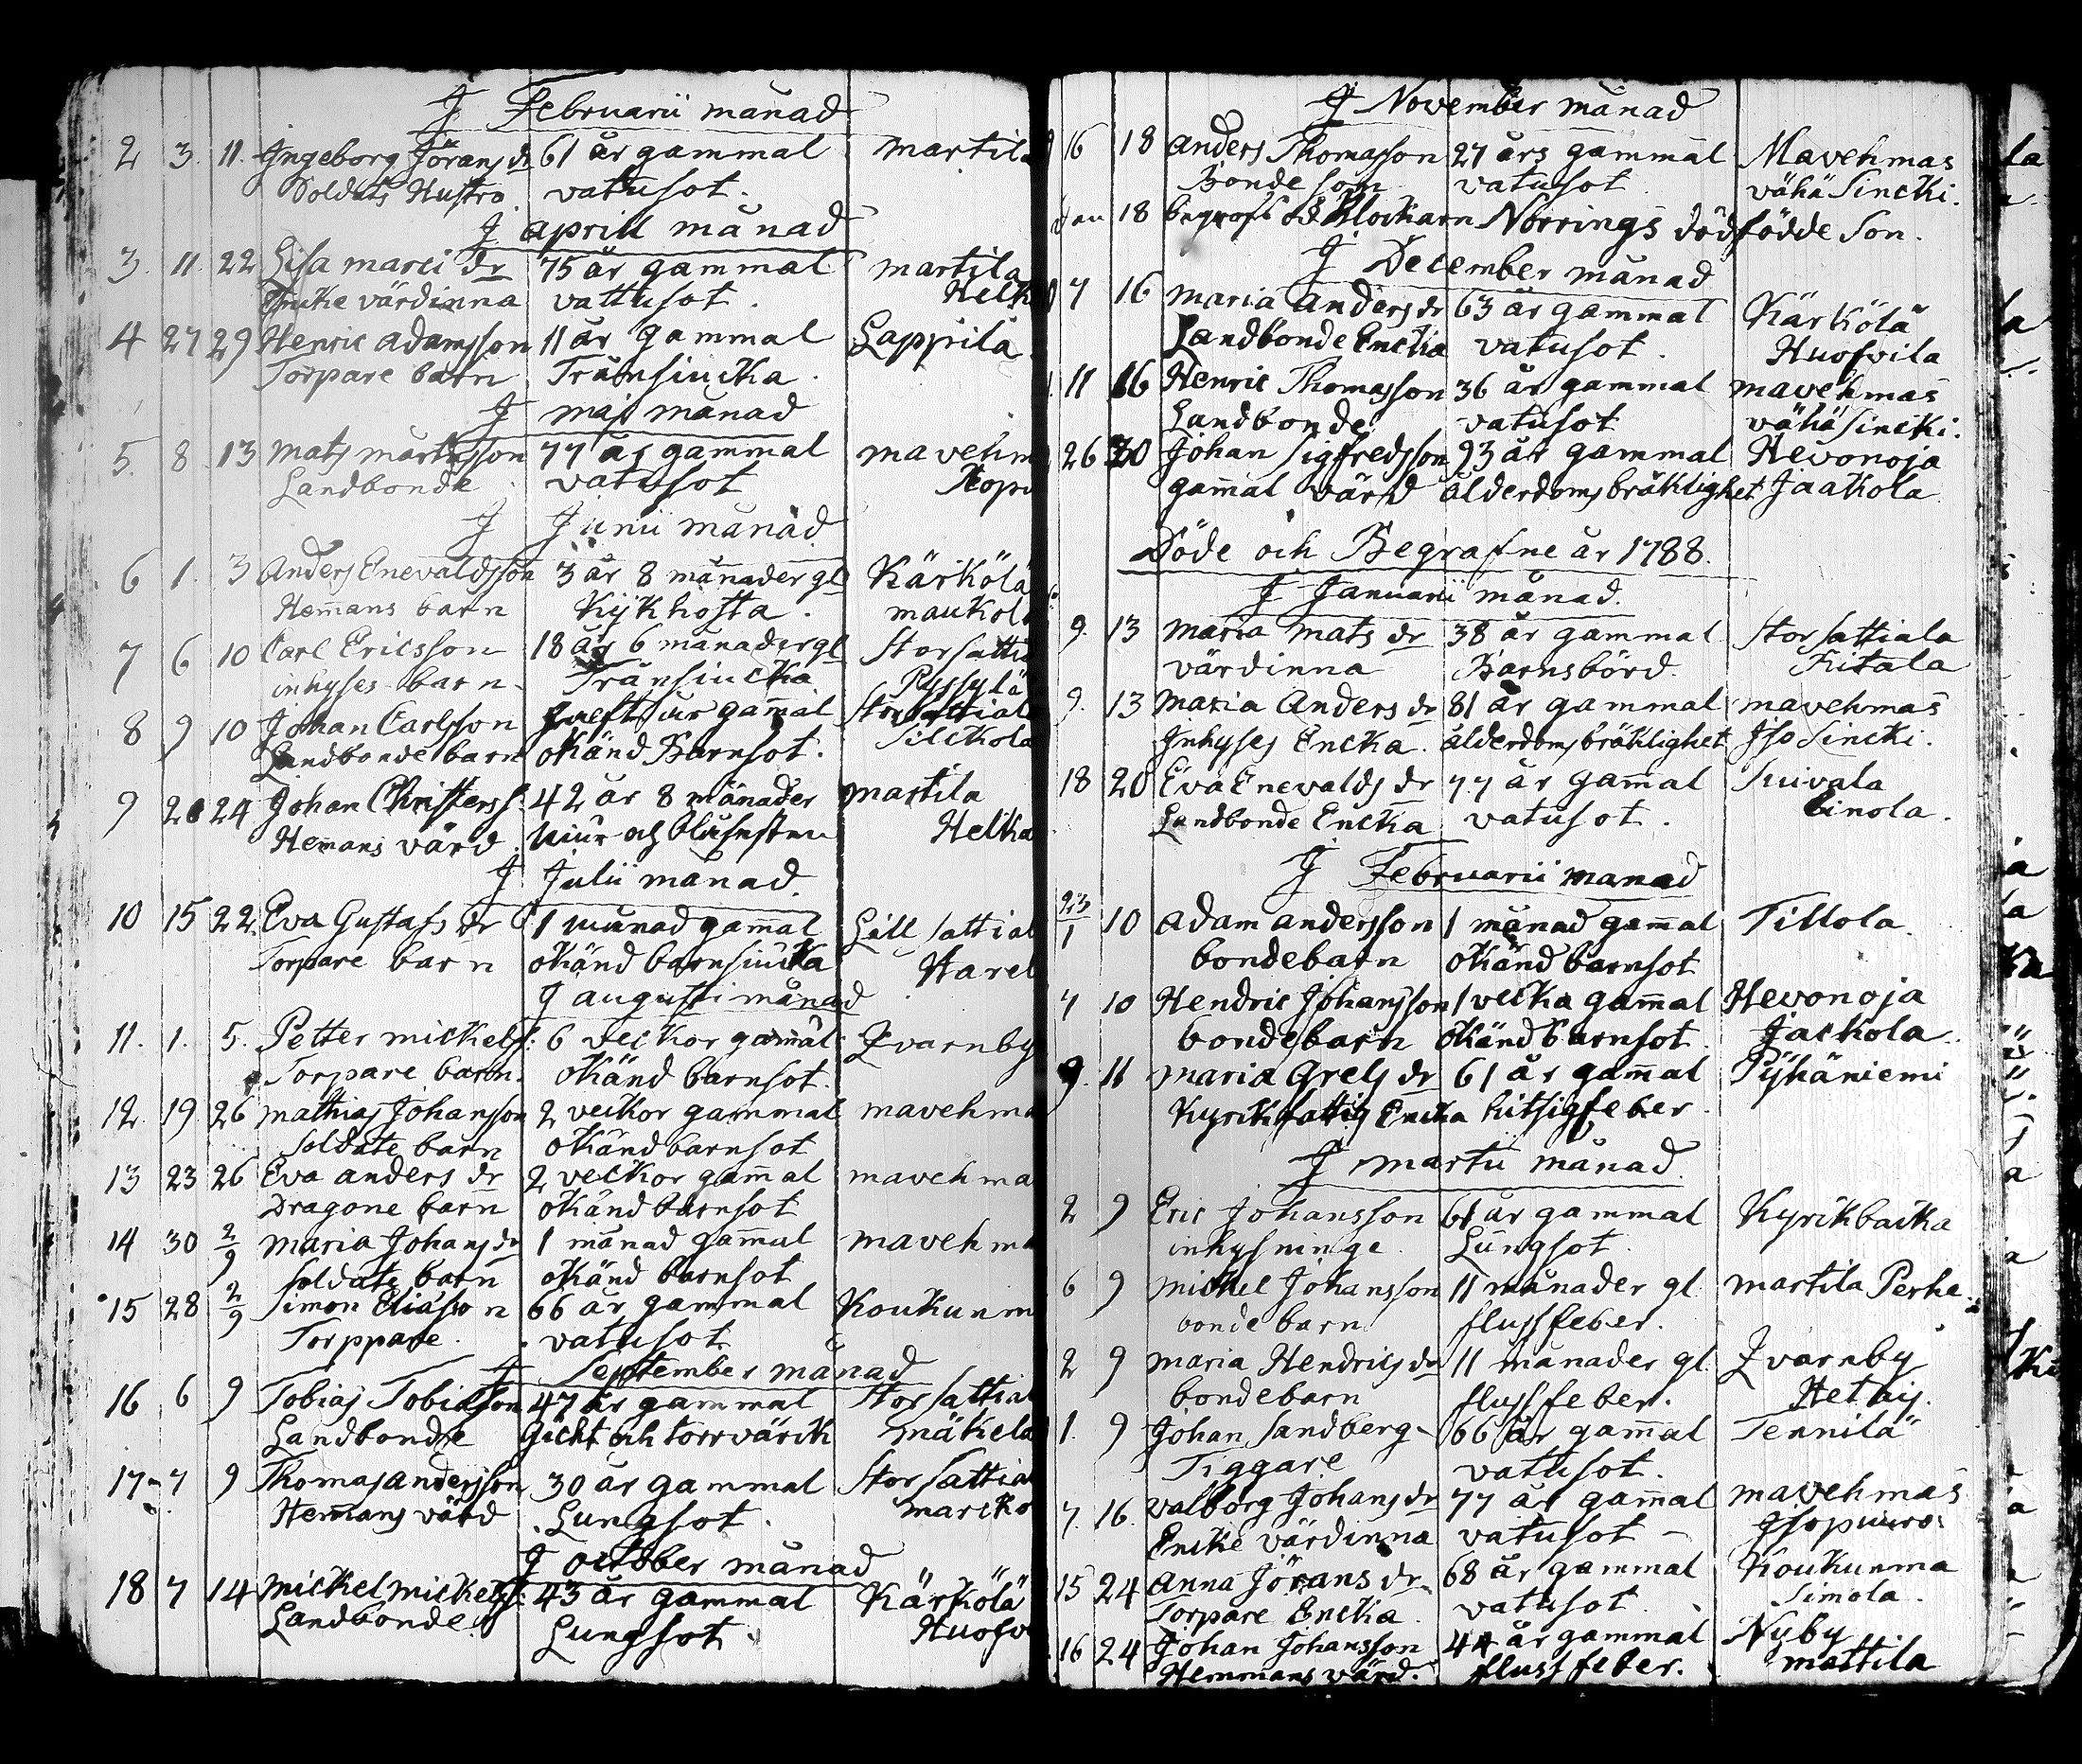 J Februarii månad
2 3. 11. Jngeborg Jörans dr 61 år gammal martila
Soldats Hustro vatusot.
J aprill månad
3. 11. 22 Lisa marci dr 75 år gammal martila
Encke värdinna vattusot. Helk
4 27 29 Henric adamsson 11 år gammal Lappila
Torpare barn Trånsiucka.
J maj månad
5. 8 13 mats mårtensson 77 år gammal mavehm
Landbonde vatusot
J Junii månad
6 1. 3 Anders Enevaldsson 3 år 8 månader gl Kärkölä
Hemans barn Kijkhosta. maukola
7 6 10 Carl Ericsson 18 år 6 månader gl Storsatti
inhyses barn Trånsiucka Pyssylä
8 9 10 Johan Carlsson år gamal Storsattiala
Landbonde barn okänd Barnsot. Silckola
9 20 24 Johan Christerss: 42 år 8 månader martila
Hemans värd. och Helka
J Julii månad.
10 15 22 Eva Gustafs dr 1 månad gamal Lill sattial
Torpare barn okänd barnsiucka
J augusti månad
11. 1. 5. Petter mickelss: 6 veckor gamal Qvarnby
Torpare barn. okänd barnsot.
12. 19 26 mathias Johansson 2 veckor gammal mavehma
Soldate barn okänd barnsot
13 23 26 Eva anders dr 2 veckor gamal mavehma
Dragone barn okänd barnsot
14 30 2/9 maria Johans dr 1 månad gamal mavehma
soldate barn okänd barnsot
15 28 2/9 Simon Eliasson 66 år gammal Koukunm
Torppare. vatusot
J September månad
16 6 9 Tobias Tobiasson 47 år gammal Storsattial
Landbonde Gickt och torrvärck mäkela
17 7 9 Thomas andersson 30 år gammal Stor sattial
Hemans värd Lungsot. marcko
J october månad
18 7 14 mickel mickelss: 43 år gammal Kärkölä
Landbonde Lungsot Huofv
J November månad
16 18 anders Thomasson 27 års gammal Mavehmas
Bonde son vatusot vähä Sincki.
18 Klockarn Norrings dödfödde Son.
J December månad
7 16 maria anders dr 63 år gammal Kärkölä
Landbonde Enckia vatusot. Huofvila
11 16 Henric Thomasson 36 år gammal mavehmas
Landbonde vatusot vähä Sincki.
26 30 Johan Sigfredsson 93 år gammal Hevonoja
gamal värd ålderdoms bräklighet Jaakola
Döde och Begrafne år 1788.
J Januarii månad.
9. 13 maria mats dr 38 år gammal Stor sattiala
värdinna Barnsbörd.
9. 13 maria Anders dr 81 år gammal mavehmas
Jnhyses Encka. ålderdoms bräklighet Jso Sincki.
18 20 Eva Enevalds dr 77 år gamal Kuivala
Landbonde Encka vatusot. Einola.
J Februarii månad
23/1 10 adam andersson 1 månad gamal Tillola.
bondebarn okänd barnsot
7 10 Hendric Johansson 1 vecka gamal Hevonoja
bondebarn okänd barnsot. Jackola.
9. 11 maria Grels dr 61 år gamal Pyhäniemi
Kyrikfattig Encka hitsigfeber.
J martii månad.
2 9 Eric Johansson 61 år gammal Kyrikbacka
inhysninge. Lungsot.
6 9 mickel Johansson 11 månader gl. martila Perhe
bonde barn flussfeber.
2 9 maria Hendrics dr 11 månader gl. Qvarnby
bondebarn flussfeber.
1. 9 Johan Sandberg 66 år gamal Tennilä
Tiggare vatusot.
7. 16. valborg Johans dr 77 år gamal mavehmas
Encke värdinna vatusot Jsopuuro.
15 24 anna Jörans dr 68 år gammal Koukunma
Torpare Encka. vatusot. Simola.
16 24 Johan Johansson 44 år gammal Nyby
Hemmans värd. flussfeber. mattila